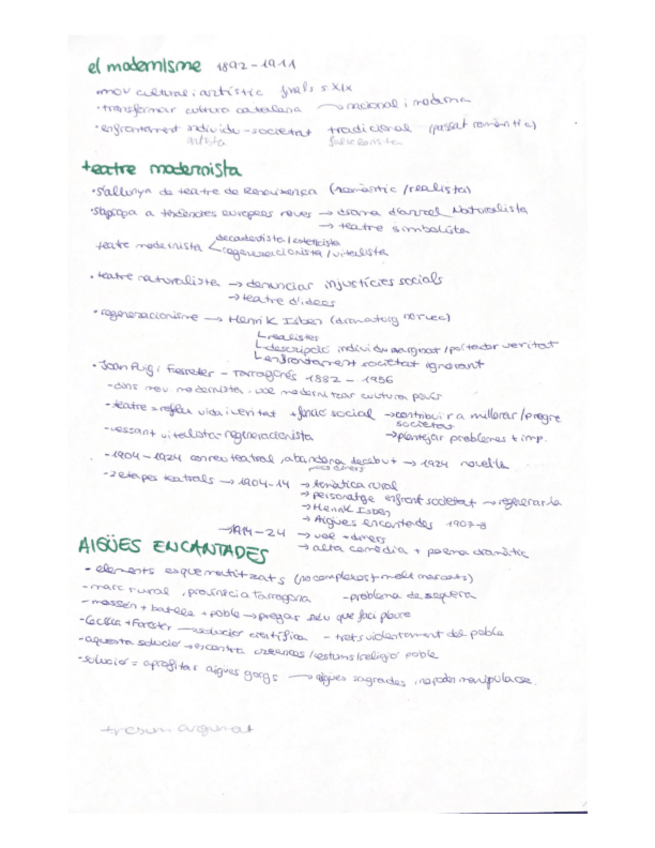 el modernisme 1892-1911
·mov cultural i artístic finals s XIX
·transformar cultura catalana → nacional i moderna
·enfrontament individu-societat tradicional (passat romàntic)
artista
teatre modernista
·s'allunya de teatre de Renaixença (romàntic/realista)
·s'apropa a tendències europees noves → drama d'arrel naturalista
→ teatre simbolista
decadentista/esteticista
teatre modernista < regeneracionista/vitalista
·teatre naturalista → denunciar injustícies socials
→ teatre d'idees
·regeneracionisme → Henrik Isben (dramaturg noruec)
realistes
descripció individu marginat/portador veritat
enfrontament societat ignorant
·Joan Puig i Ferreter - Tarragonès 1882-1956
-dins mov modernista, vol modernitzar cultura país
-teatre = reflex vida i veritat + funció social → contribuir a millorar/progre
societat
-vessant vitalista-regeneracionista → plantejar problemes + imp.
-1904-1924 conreu teatral, abandona → 1924 novel·la
-2 etapes teatrals → 1904-14 → temàtica rural
→ personatge enfront societat → regenerar-la
→ Henrik Isben
→ Aigües encantades 1907-8
→ 1914-24 → vol + diners
→ alta comèdia + poema dramàtic
AIGÜES ENCANTADES
-elements esquematitzats (no complexos + molt marcats)
-marc rural, província Tarragona -problema de sequera
-mossèn + batlle + poble → pregar déu que faci ploure
-Cecília + Foraster → solució científica - trets violentament del poble
-aquesta solució → encontra creences/costums/religió poble
-solució = aprofitar aigües gorgs → aigües sagrades, no poden manipular-se.
+resum argument